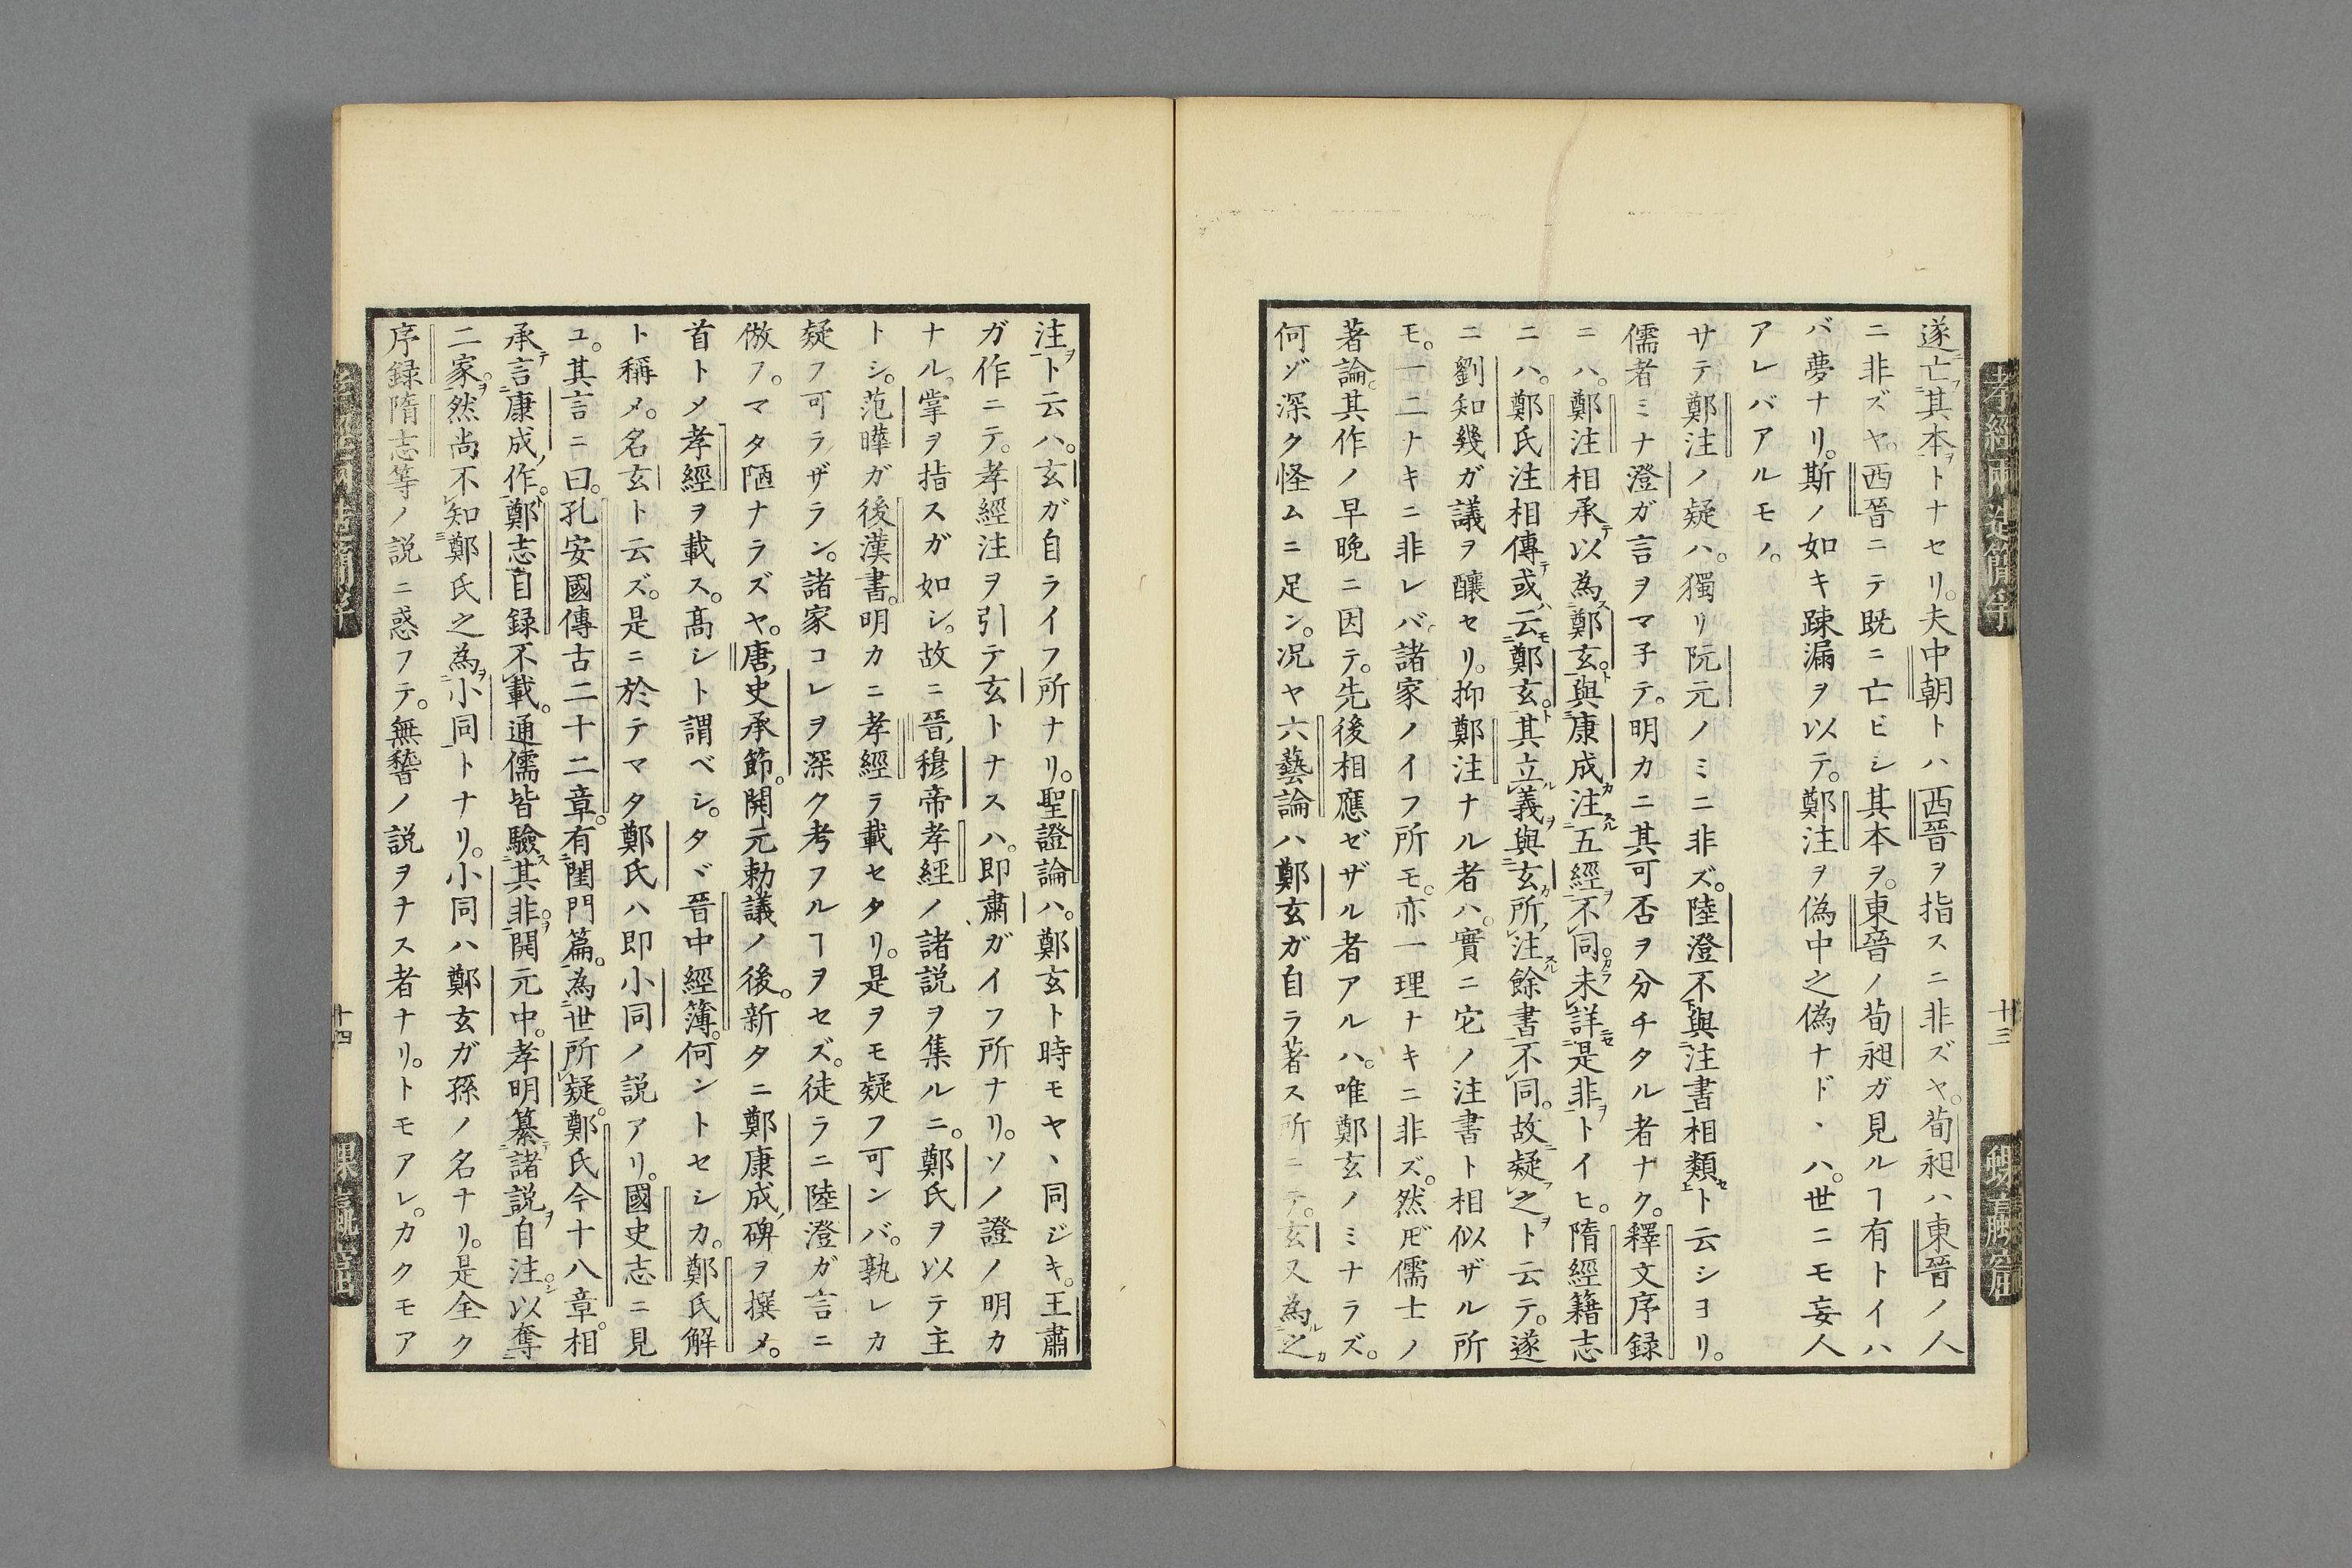 遂亡其本トナセリ。夫中朝トハ西晉ヲ指スニ非ズヤ。荀昶ハ東晉ノ人
ニ非ズヤ。西晉ニテ既ニ亡ビシ其本ヲ。東晉ノ荀昶ガ見ルヿ有トイハ
バ夢ナリ。斯ノ如キ疎漏ヲ以テ。鄭注ヲ偽中之偽ナド、ハ。世ニモ妄人
アレバアルモノ。
サテ鄭注ノ疑ハ。獨リ阮元ノミニ非ズ。陸澄不與注書相類ト云シヨリ。
儒者ミナ澄ガ言ヲマ子テ。明カニ其可否ヲ分チタル者ナク。釋文序録
ニハ。鄭注相承以為鄭玄。與康成注五經不同未詳是非トイヒ。隋經籍志
ニハ。鄭氏注相傳或云鄭玄。其立義與玄所注餘書不同。故疑之ト云テ。遂
ニ劉知幾ガ議ヲ釀セリ。抑鄭注ナル者ハ。實ニ它ノ注書ト相似ザル所
モ。一二ナキニ非レバ。諸家ノイフ所モ。亦一理ナキニ非ズ。然𪜈儒士ノ
著論。其作ノ早晩ニ因テ。先後相應ゼザル者アルハ。唯鄭玄ノミナラズ。
何ゾ深ク怪ムニ足ン。况ヤ六藝論ハ鄭玄ガ自ラ著ス所ニテ。玄又為之
注ト云ハ。玄ガ自ライフ所ナリ。聖證論ハ。鄭玄ト時モヤ、同ジキ。王肅
ガ作ニテ。孝經注ヲ引テ玄トナスハ。即肅ガイフ所ナリ。ソノ證ノ明カ
ナル。掌ヲ指スガ如シ。故ニ晉穆帝孝經ノ諸説ヲ集ルニ。鄭氏ヲ以テ主
トシ。范曄ガ後漢書。明カニ孝經ヲ載セタリ。是ヲモ疑フ可ンバ。孰レカ
疑フ可ラザラン。諸家コレヲ深ク考フルヿヲセズ。徒ラニ陸澄ガ言ニ
倣フ。マタ陋ナラズヤ。唐史承節。開元勅議ノ後。新タニ鄭康成碑ヲ撰メ。
首トメ孝經ヲ載ス。髙シト謂ベシ。タヾ晉中經簿。何ントセシカ。鄭氏解
ト稱メ。名玄ト云ズ。是ニ於テマタ鄭氏ハ即小同ノ説アリ。國史志ニ見
ユ。其言ニ曰。孔安國傳古二十二章。有閨門篇。為世所疑。鄭氏今十八章。相
承言康成作。鄭志自録不載。通儒皆驗其非。開元中。孝明纂諸説自注。以奪
二家。然尚不知鄭氏之為小同トナリ。小同ハ鄭玄ガ孫ノ名ナリ。是全ク
序録隋志等ノ説ニ惑フテ。無稽ノ説ヲナス者ナリ。トモアレ。カクモア
十三
十四